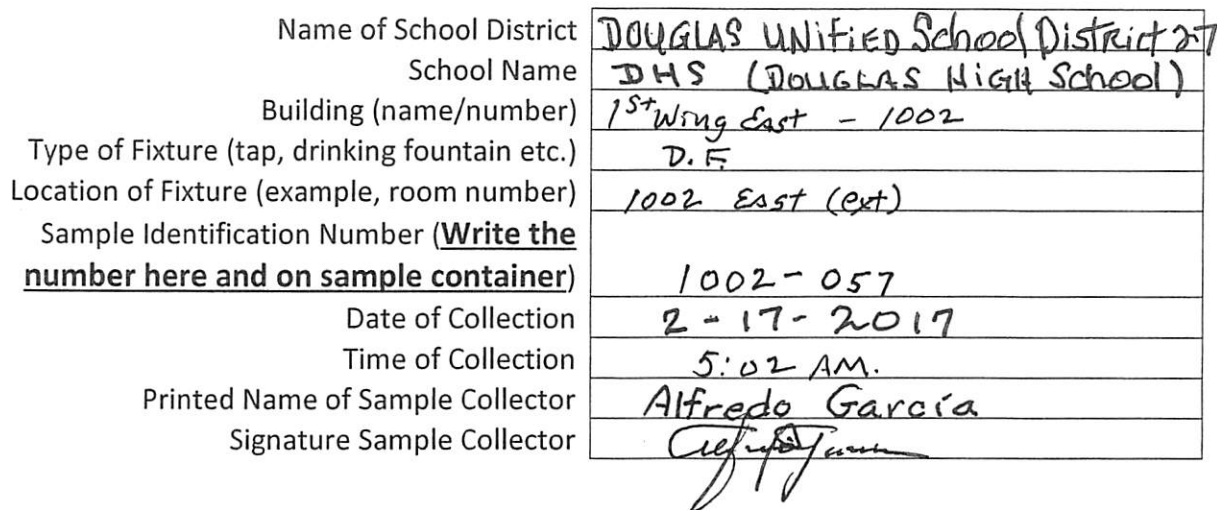 Name of School District DOUGLAS UNiFiED School District 27
School Name DHS (DOUGLAS HiGH School)
Building (name/number) 1st Wing East - 1002
Type of Fixture (tap, drinking fountain etc.) D.F.
Location of Fixture (example, room number) 1002 East (ext)
Sample Identification Number (Write the
number here and on sample container) 1002-057
Date of Collection 2-17-2017
Time of Collection 5:02 AM.
Printed Name of Sample Collector Alfredo García
Signature Sample Collector